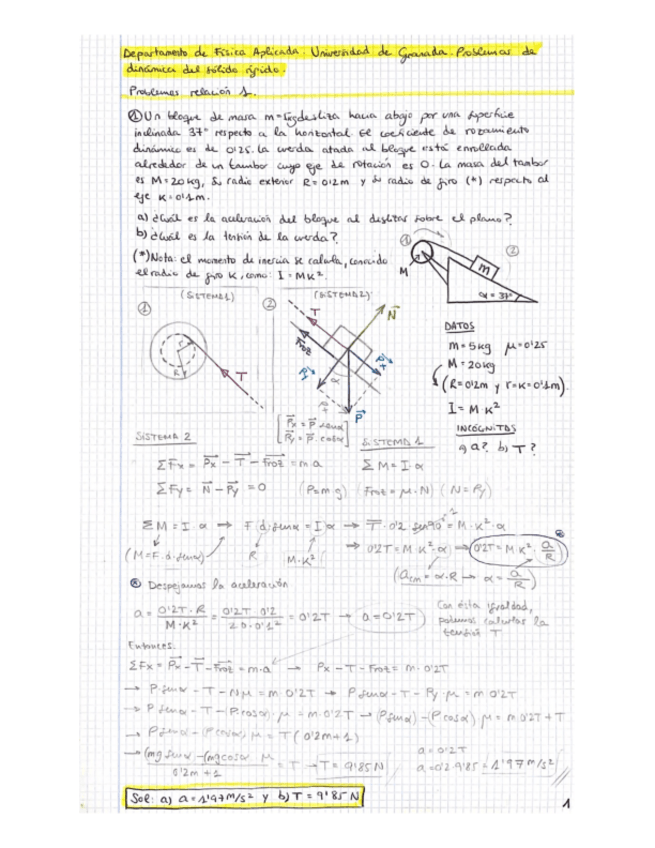 Departamento de Física Aplicada. Universidad de Granada. Problemas de
dinámica del sólido rígido.
Problemas relación 1.
① Un bloque de masa m=5kg desliza hacia abajo por una superficie
inclinada 37° respecto a la horizontal. El coeficiente de rozamiento
dinámico es de 0'25. La cuerda atada al bloque está enrollada
alrededor de un tambor cuyo eje de rotación es O. La masa del tambor
es M=20kg, su radio exterior R=0'2m y su radio de giro (*) respecto al
eje K=0'1m.
a) ¿Cuál es la aceleración del bloque al deslizar sobre el plano?
b) ¿Cuál es la tensión de la cuerda?
(*) Nota: el momento de inercia se calcula, conocido
el radio de giro K, como: I=MK².
① ②
M m
α=37°
(SISTEMA 1) (SISTEMA 2)
① ②
r R T
T N Froz Px Py α P
[Px = P senα
Py = P. cosα]
DATOS
m=5kg μ=0'25
M=20kg
(R=0'2m y r=K=0'1m)
I=M K²
INCÓGNITAS
a) a? b) T?
SISTEMA 2 SISTEMA 1
ΣFx = Px - T - Froz = m.a ΣM = I.α
ΣFy = N - Py = 0 (P=m.g) (Froz=μ.N) (N=Py)
ΣM = I.α → F.d.senα = I.α → T.0'2 sen90° = M.K².α
(M=F.d.senα) R M.K²
→ 0'2T = M.K².α → 0'2T = M K². a/R
(acm = α.R → α = a/R)
Despejamos la aceleración
a = 0'2T.R / M.K² = 0'2T.0'2 / 20.0'1² = 0'2T → a=0'2T
Con ésta igualdad,
podemos calcular la
tensión T
Entonces.
ΣFx = Px - T - Froz = m.a → Px - T - Froz = m.0'2T
→ P senα - T - Nμ = m 0'2T → P senα - T - Py.μ = m 0'2T
→ P senα - T - (P.cosα).μ = m.0'2T → (P senα) - (P cosα) μ = m 0'2T + T
→ P senα - (P cosα) μ = T (0'2m+1)
→ (mg senα - (mg cosα μ / 0'2m+1 = T → T = 9'85N
a = 0'2T
a = 0'2.9'85 = 1'97 m/s²
Sol: a) a=1'97 m/s² y b) T=9'85 N
1